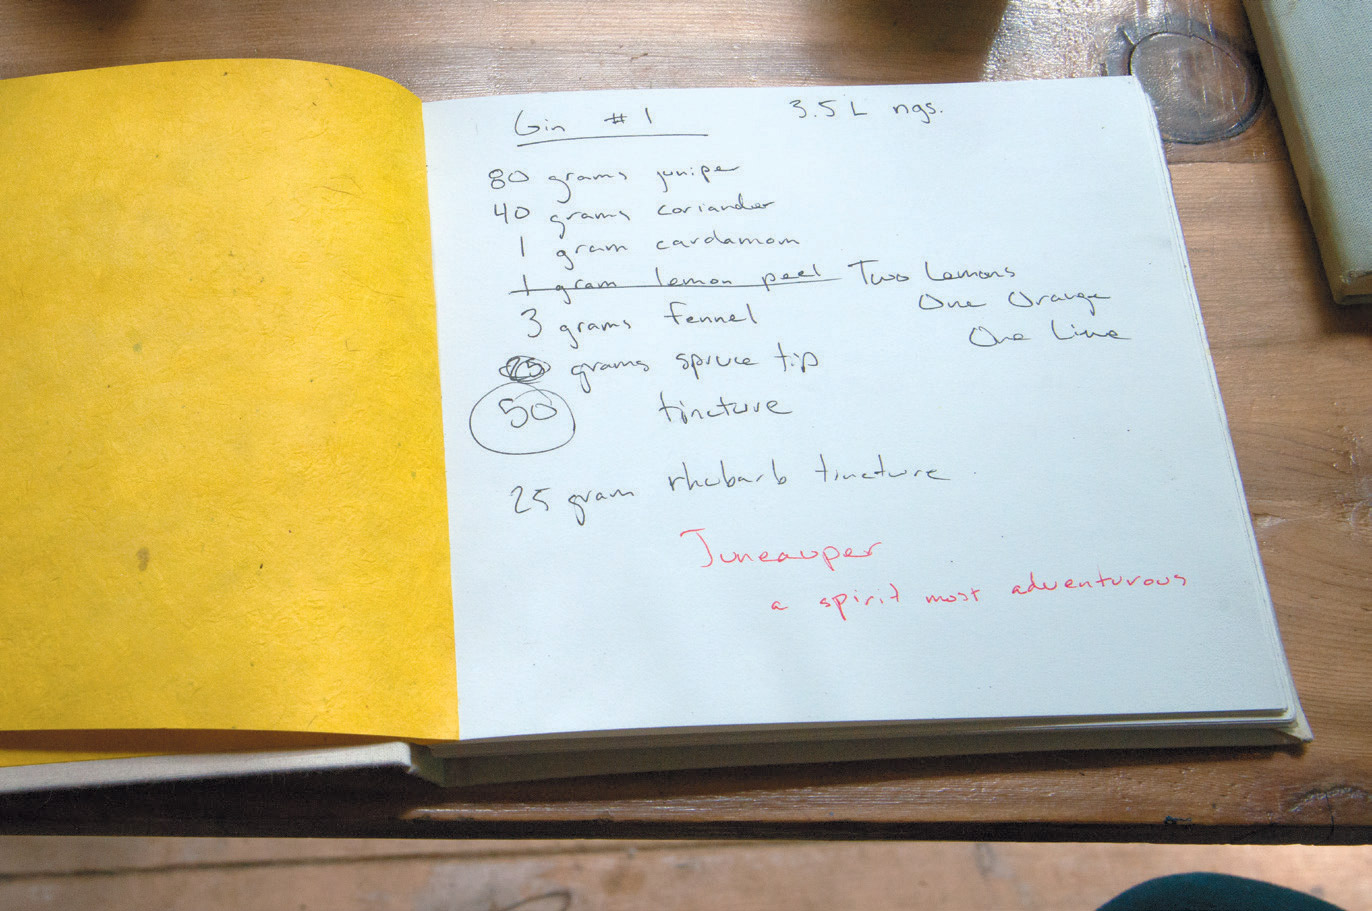 Gin #1 3.5 L ngs.
80 grams juniper
40 grams coriander
1 gram cardamom
1 gram lemon peel Two Lemons
One Orange
3 grams fennel
One Lime
grams spruce tip
50 tincture
25 gram rhubarb tincture
Juneauper
a spirit most adventurous